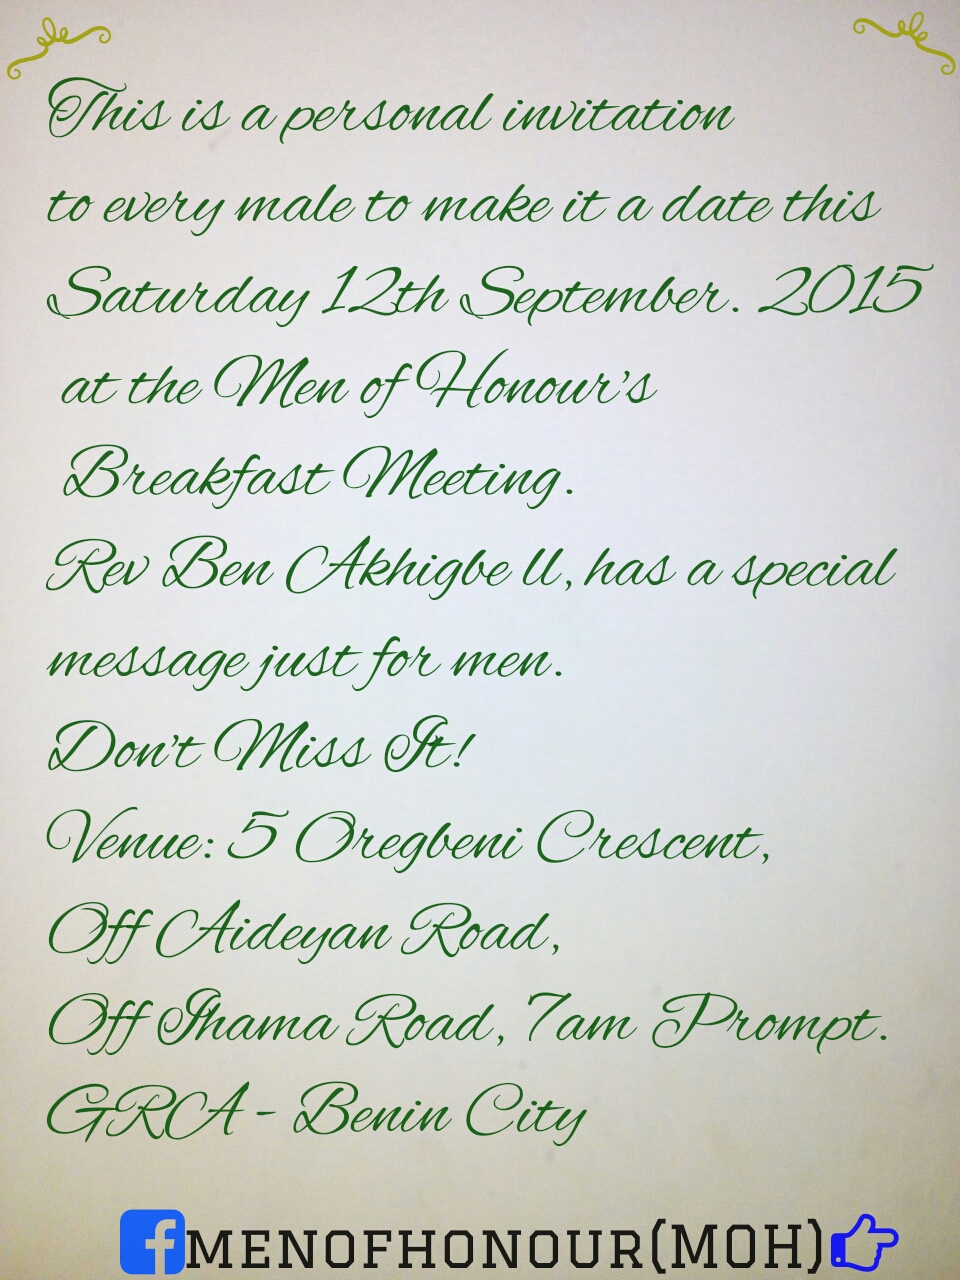 This is a personal invitation
to every male to make it a date this
Saturday 12th September. 2015
at the Men of Honour's
Breakfast Meeting.
Rev Ben Akhigbe ll, has a special
message just for men.
Don't Miss It!
Venue: 5 Oregbeni Crescent,
Off Aideyan Road,
Off Ihama Road, 7am Prompt.
GRA - Benin City
MENOFHONOUR(MOH)